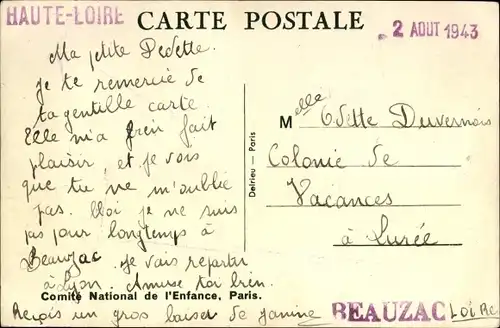 HAUTE-LOIRE
CARTE POSTALE
2 AOUT 1943
Ma petite Dedette.
Je te remercie de
ta gentille carte.
Elle m'a bien fait
plaisir, et je vois
que tu ne m'oublie
pas. Moi je ne suis
pas pour longtemps à
Beauzac. Je vais repartir
à Lyon. Amuse toi bien.
Reçois un gros baiser de Janine
Delrieu — Paris
Melle Odette Duvernois
Colonie de
Vacances
à Lurée
Comité National de l'Enfance, Paris.
BEAUZAC (LOIRE